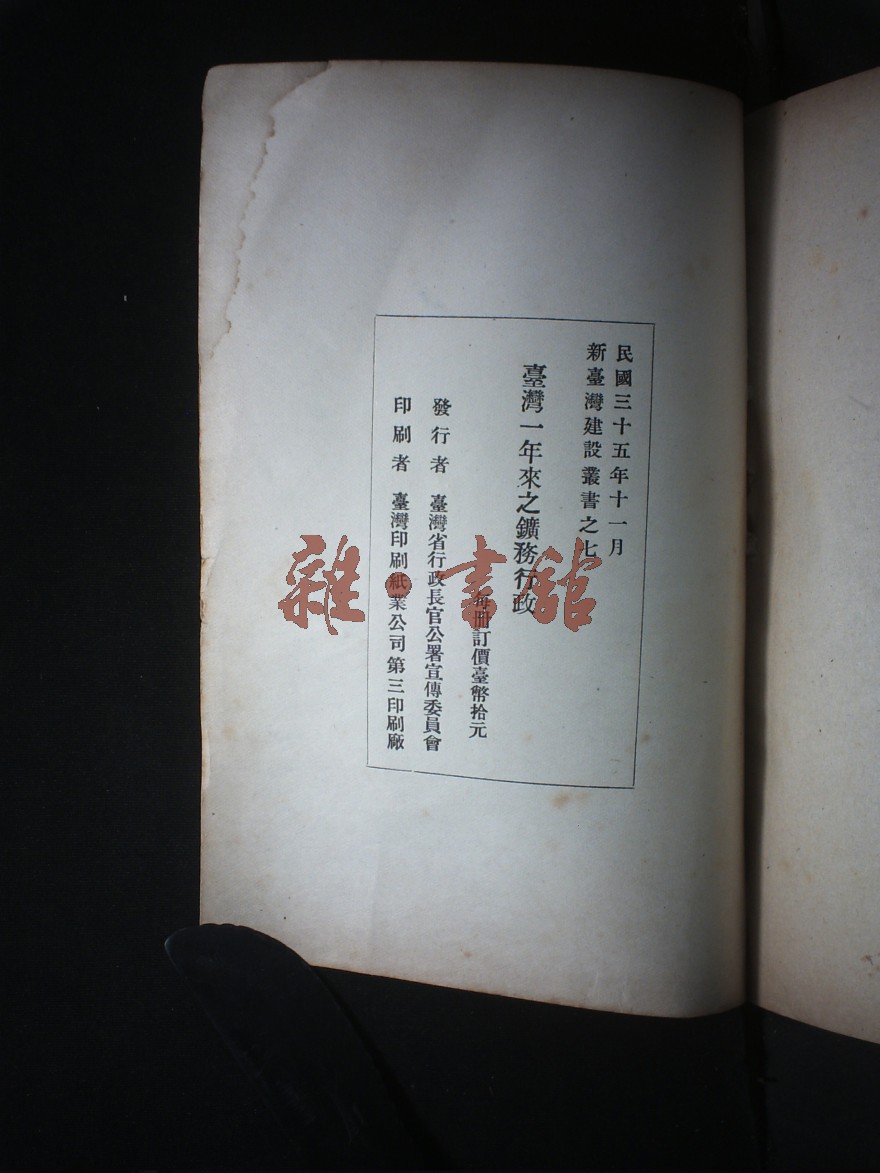 民國三十五年十一月
新臺灣建設叢書之七
臺灣一年來之鑛務行政
每冊訂價臺幣拾元
發行者 臺灣省行政長官公署宣傳委員會
印刷者 臺灣印刷紙業公司第三印刷廠
雜·書館